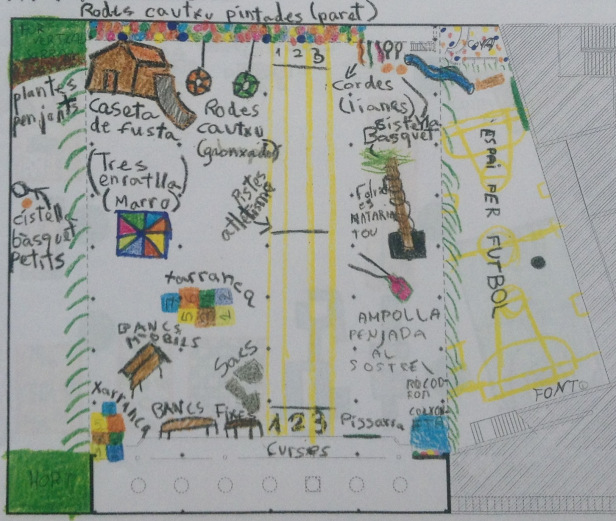 Rodes cautxu pintades (paret)
plantes
penjants
Caseta
de fusta
Rodes
cautxu
(ganxada)
1 2 3
Cordes
(lianes)
cistella
Basquet
Tres
enratlla
(Marro)
Pistes
atletisme
cistella
basquet
petits
ESPAI PER FUTBOL
xarranca
BANCS
MÒBILS
Sacs
AMPOLLA
PENJADA
AL
SOSTRE
Xarranca
BANCS Fixes
1 2 3
Pissarra
FONT
Curses
HORT